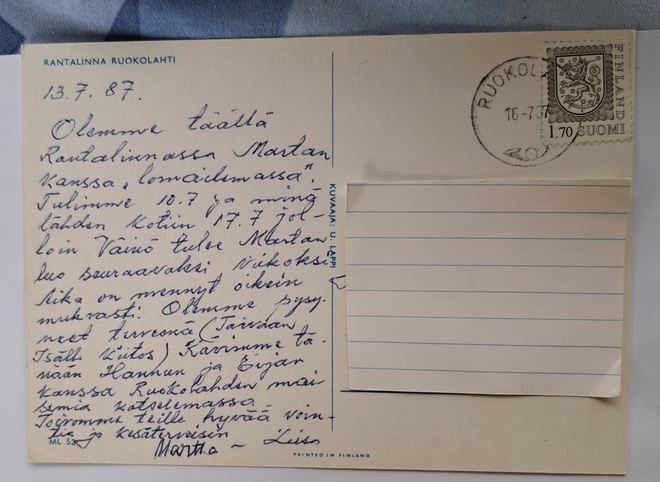 RANTALINNA RUOKOLAHTI
13.7. 87.
Olemme täällä
Rantalinnassa Martan
kanssa „lomailemassa".
Tulimme 10.7 ja minä
lähden kotiin 17.7 jol-
loin Väinö tulee Martan
luo seuraavaksi viikoksi
Aika on mennyt oikein
mukavasti. Olemme pysy-
neet terveenä (Taivaan
Isälle kiitos) Kävimme tä-
nään Hannun ja Eijan
kanssa Ruokolahden mai
semia katselemassa.
Toivomme teille hyvää voin-
tia ja kesäterveisin Liisa
Martta -
ML 53
KUVAAJA: U. LAPPI
PRINTED IN FINLAND
RUOKOL
16-7.87
FINLAND
1,70 SUOMI